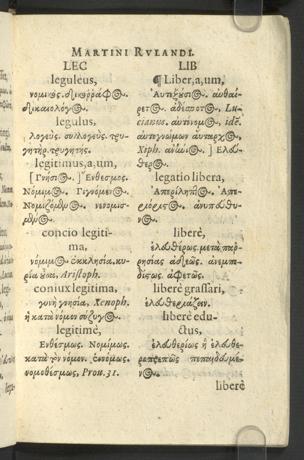 MARTINI RVLANDI.
LEC
leguleus,
νομικὸς.
δικαιολόγος.
legulus,
λογεὺς. συλλογεὺς. τρυ-
γητὴρ. τρυγητής.
legitimus, a, um,
[Γνήσιος.] Ἔνθεσμος.
Νόμιμος. Γιγνόμενος.
Νομιζόμενος. νενομισ-
μένος.
concio legiti-
ma,
νόμιμος ἐκκλησία, κυ-
ρία Aristoph.
coniux legitima,
γυνὴ γνησία, Xenoph.
ἡ κατὰ νόμον σύζυγος.
legitimè,
Ἐνθέσμως. Νομίμως.
κατὰ τὸν νόμον. ἐννόμως.
νομοθέσμως, Prou. 31.
LIB
¶ Liber, a, um,
Αὐτεξούσιος. αὐθαί-
ρετος. ἀδέσποτος, Lu-
cianus. αὐτόνομος, idē.
Xiph. [Ἐλεύ-
θερος.
legatio libera,
liberè,
ἐλευθέρως. μετὰ παῤ-
ῥησίας ἀδεῶς. ἀνεμπο-
δίστως. ἀφετῶς.
liberè grassari,
ἐλευθεριάζειν.
liberè edu-
ctus,
ἐλευθερίως ἢ ἐλευθε-
ροπρεπῶς πεπαιδευμέ-
νος.
liberè